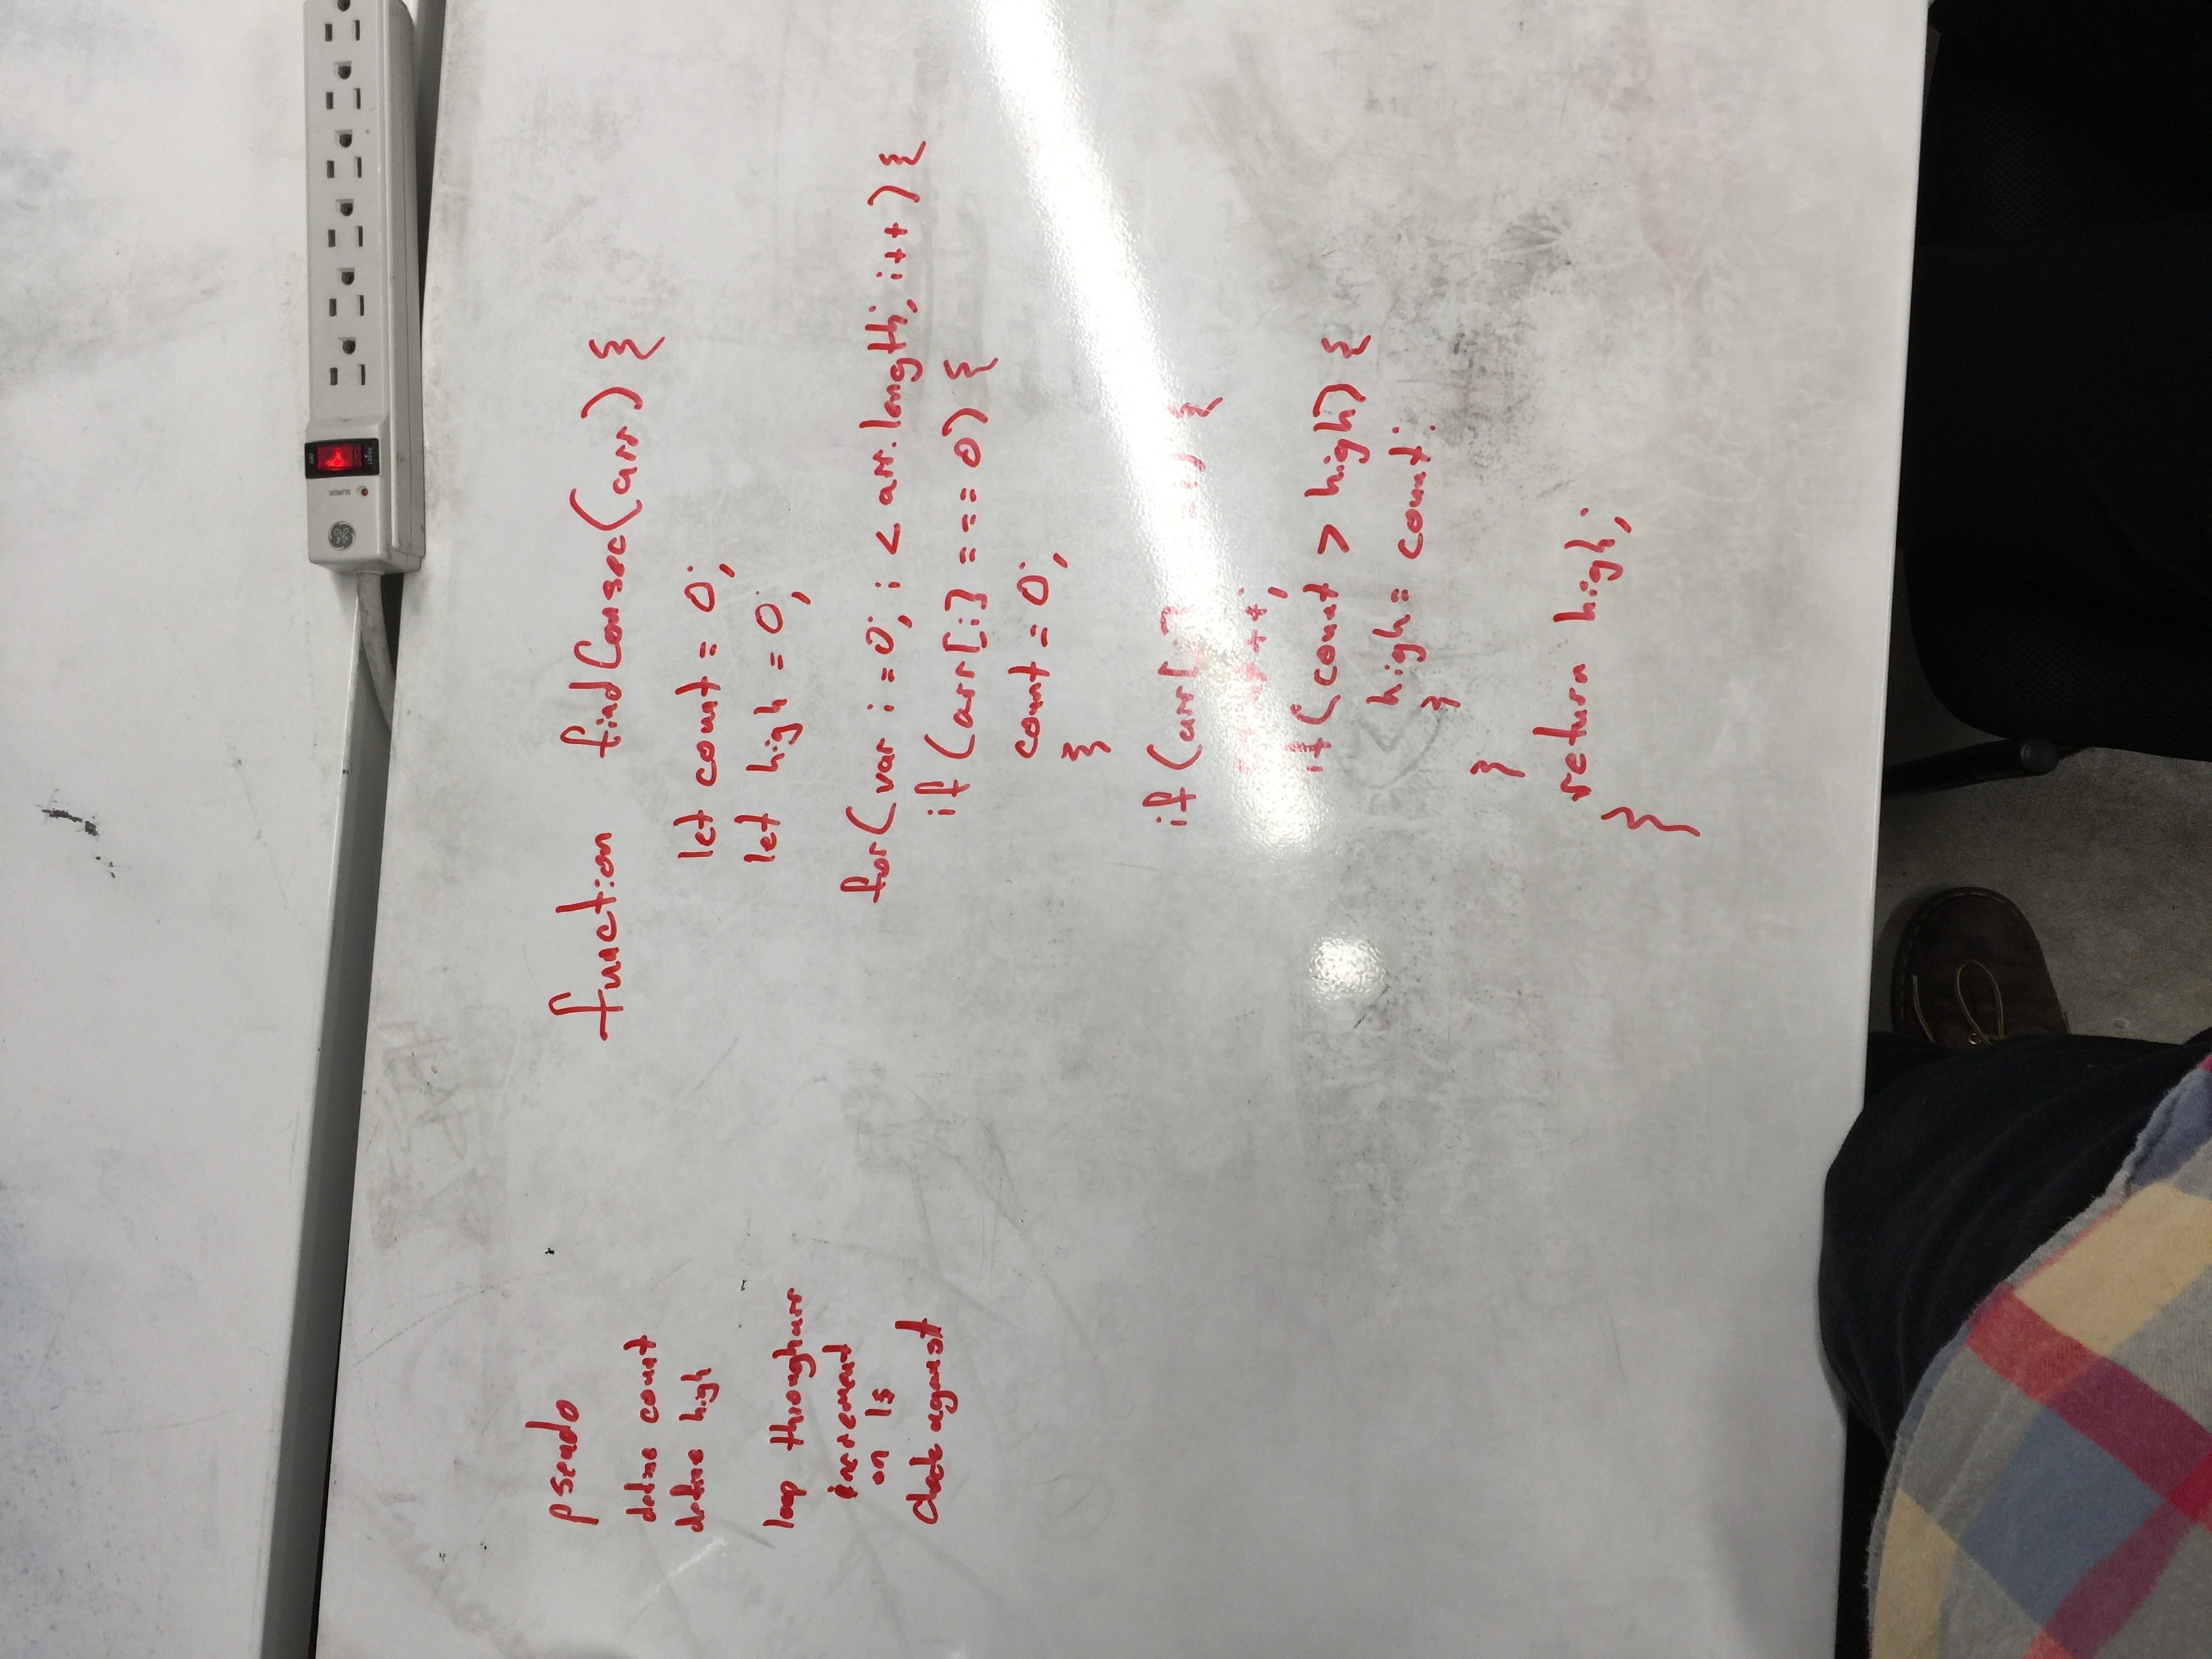 OFF
SURGE
RESET
pseudo
define count
define high
loop through arr
increment
on 1s
check against
function findConsec(arr) {
let count = 0;
let high = 0;
for(var i = 0; i < arr.length; i++) {
if (arr[i] === 0) {
count = 0;
}
if (arr[i] ==1) {
++;
if (count > high) {
high = count;
}
}
return high;
}